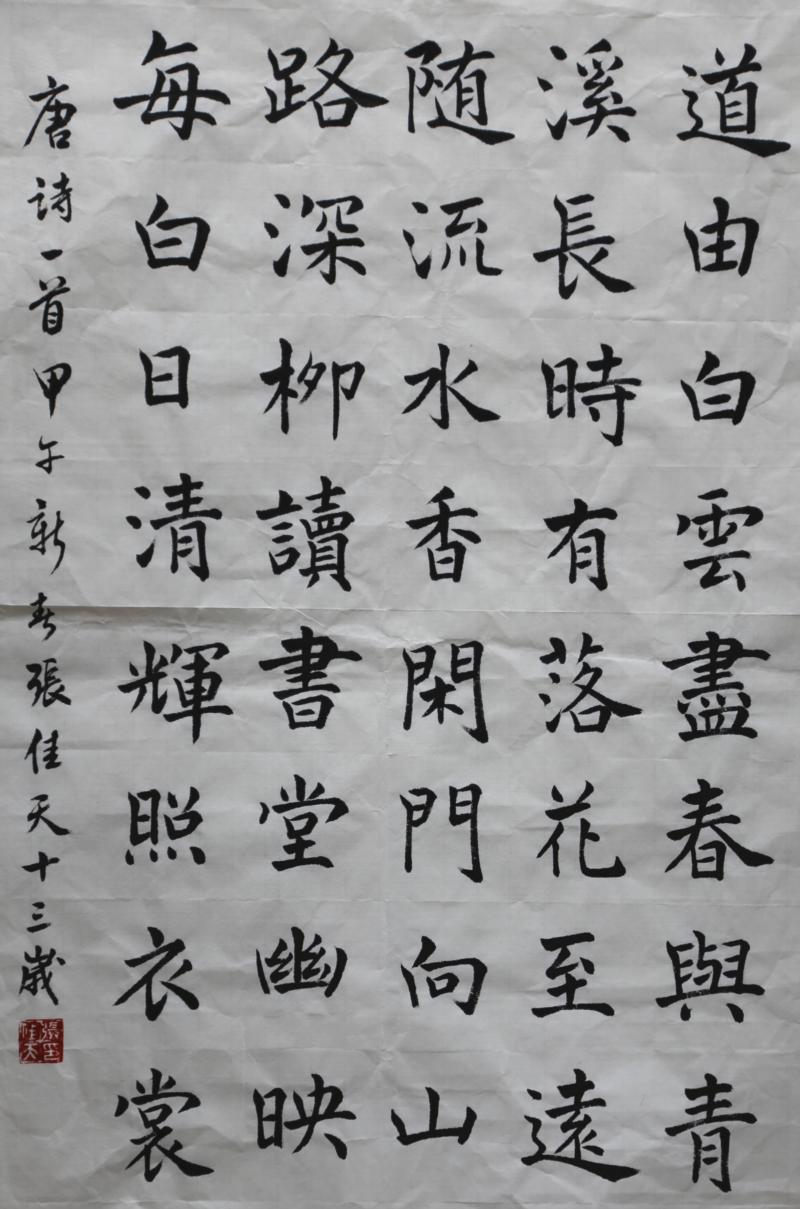 道由白雲盡春與青
溪長時有落花至遠
随流水香閑門向山
路深柳讀書堂幽映
每白日清輝照衣裳
唐詩一首甲午新春張佳天十三歲
張佳天印